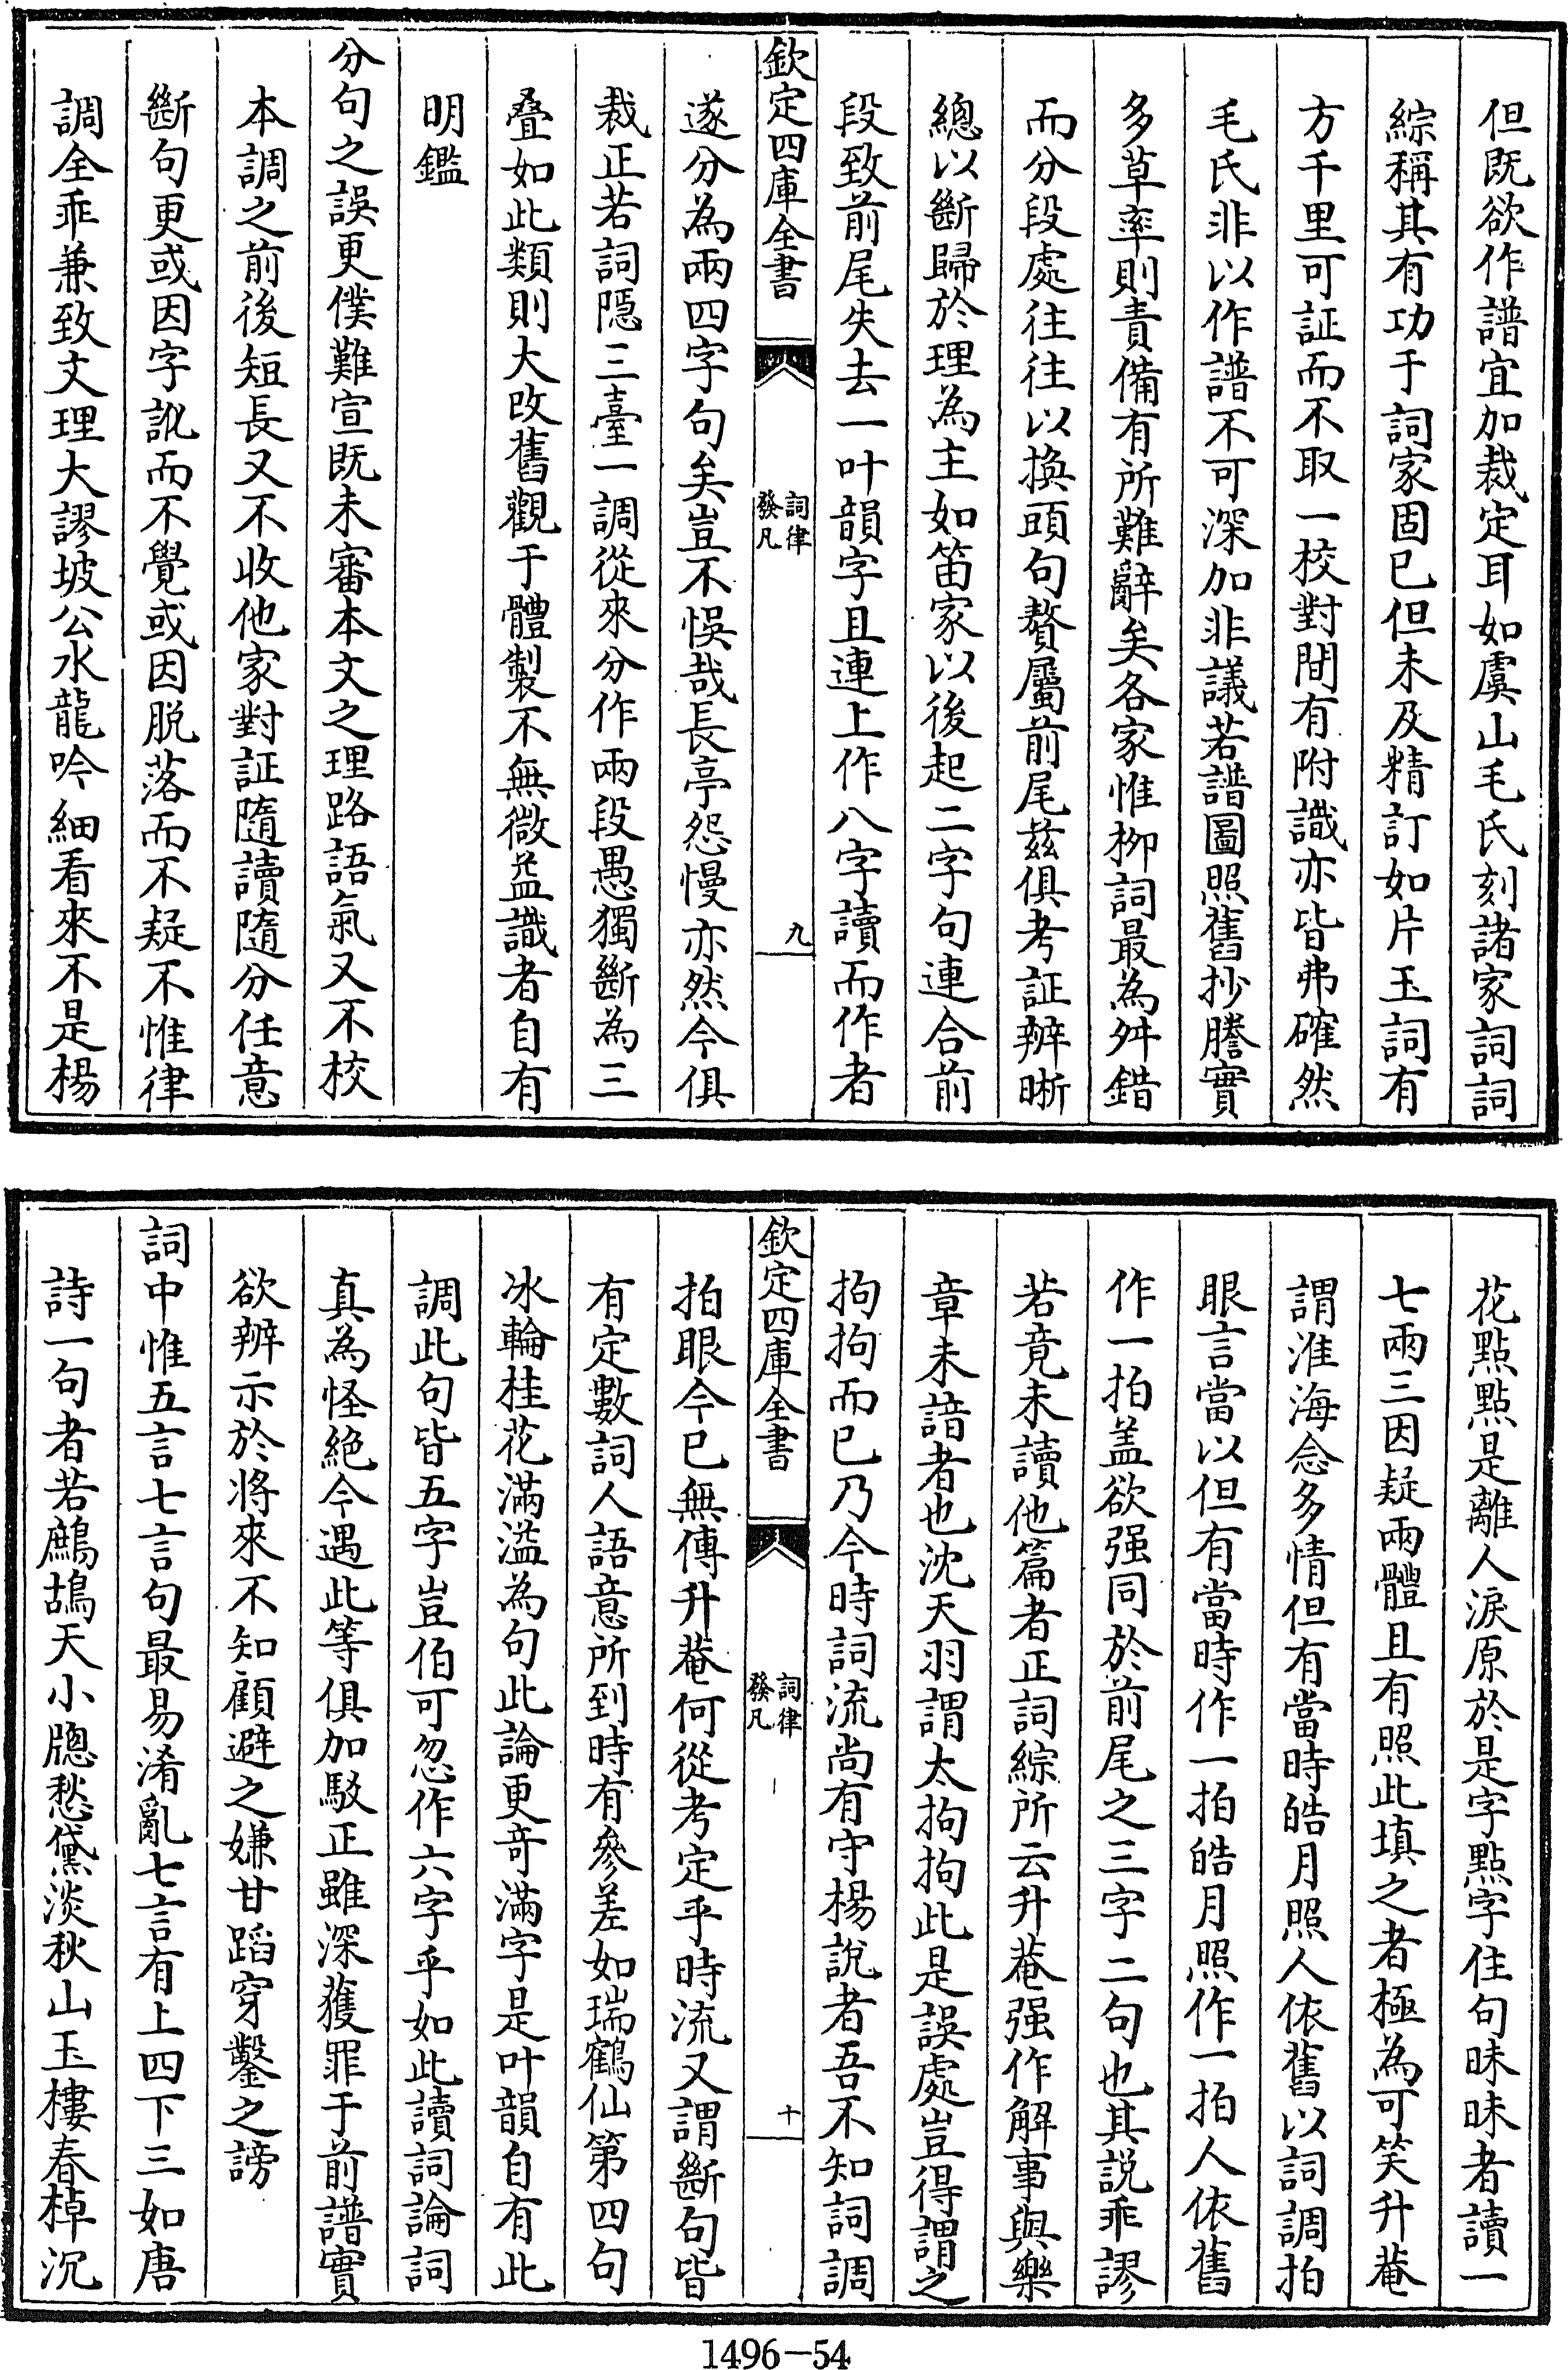 但既欲作譜宜加裁定耳如虞山毛氏刻諸家詞詞
綜稱其有功于詞家固已但未及精訂如片玉詞有
方千里可証而不取一校對間有附識亦皆弗確然
毛氏非以作譜不可深加非議若譜圖照舊抄謄實
多草率則責備有所難辭矣各家惟柳詞最為舛錯
而分段處往往以換頭句贅屬前尾兹俱考証辨晰
總以斷歸於理為主如笛家以後起二字句連合前
段致前尾失去一叶韻字且連上作八字讀而作者
欽定四庫全書
詞律
發凡
九
遂分為兩四字句矣豈不悞哉長亭怨慢亦然今俱
裁正若詞隱三臺一調從來分作兩段愚獨斷為三
疊如此類則大改舊觀于體製不無微益識者自有
明鑑
分句之誤更僕難宣既未審本文之理路語氣又不校
本調之前後短長又不收他家對証隨讀隨分任意
斷句更或因字訛而不覺或因脱落而不疑不惟律
調全乖兼致文理大謬坡公水龍吟細看來不是楊
花點點是離人淚原於是字點字住句昧昧者讀一
七兩三因疑兩體且有照此填之者極為可笑升菴
謂淮海念多情但有當時皓月照人依舊以詞調拍
眼言當以但有當時作一拍皓月照作一拍人依舊
作一拍盖欲强同於前尾之三字二句也其説乖謬
若竟未讀他篇者正詞綜所云升菴强作解事與樂
章未諳者也沈天羽謂太拘拘此是誤處豈得謂之
拘拘而已乃今時詞流尚有守楊說者吾不知詞調
欽定四庫全書
詞律
發凡
十
拍眼今已無傳升菴何從考定乎時流又謂斷句皆
有定數詞人語意所到時有參差如瑞鶴仙第四句
冰輪桂花滿溢為句此論更奇滿字是叶韻自有此
調此句皆五字豈伯可忽作六字乎如此讀詞論詞
真為怪絶今遇此等俱加駁正雖深獲罪于前譜實
欲辨示於將來不知顧避之嫌甘蹈穿鑿之謗
詞中惟五言七言句最易淆亂七言有上四下三如唐
詩一句者若鷓鴣天小牕愁黛淡秋山玉樓春棹沉
1496-54